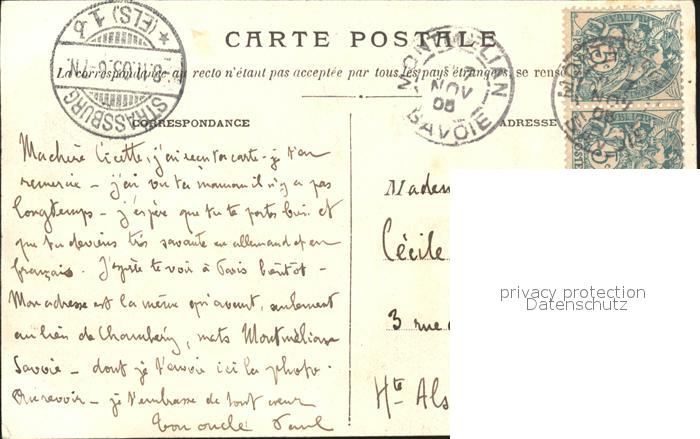 CARTE POSTALE
La correspondance au recto n'étant pas acceptée par tous les pays étrangers, se rense
CORRESPONDANCE
ADRESSE
STRASSBURG
(ELS) 1. b
8.11.05. 6-7N.
MONTMELIAN
7
NOV
05
SAVOIE
Ma chère Cécette, j'ai reçu ta carte - je t'en
remercie - j'ai vu ta maman il n'y a pas
longtemps - j'espère que tu te portes bien et
que tu deviens très savante en allemand et en
français. J'espère te voir à Paris bientôt -
Mon adresse est la même qu'avant, seulement
au lieu de Chambéry, mets Montmélian
Savoie - dont je t'envoie ici la photo.
Au revoir - je t'embrasse de tout cœur
ton oncle Paul
Madem
Cécile
3 rue
Hte Als
privacy protection
Datenschutz